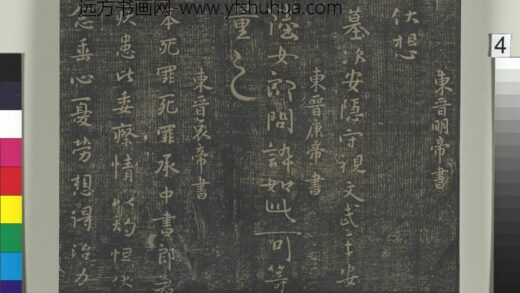 远方书画网-www.ytshuhua.com
4
東晉明帝書
伏想
墓次安隱守視文武平安
東晉康帝書
陵女郎問訃如此可答
重
東晉哀帝書
死罪死罪承中書郎
疾患此委療情以灼怛次
垂心憂勞想得治力